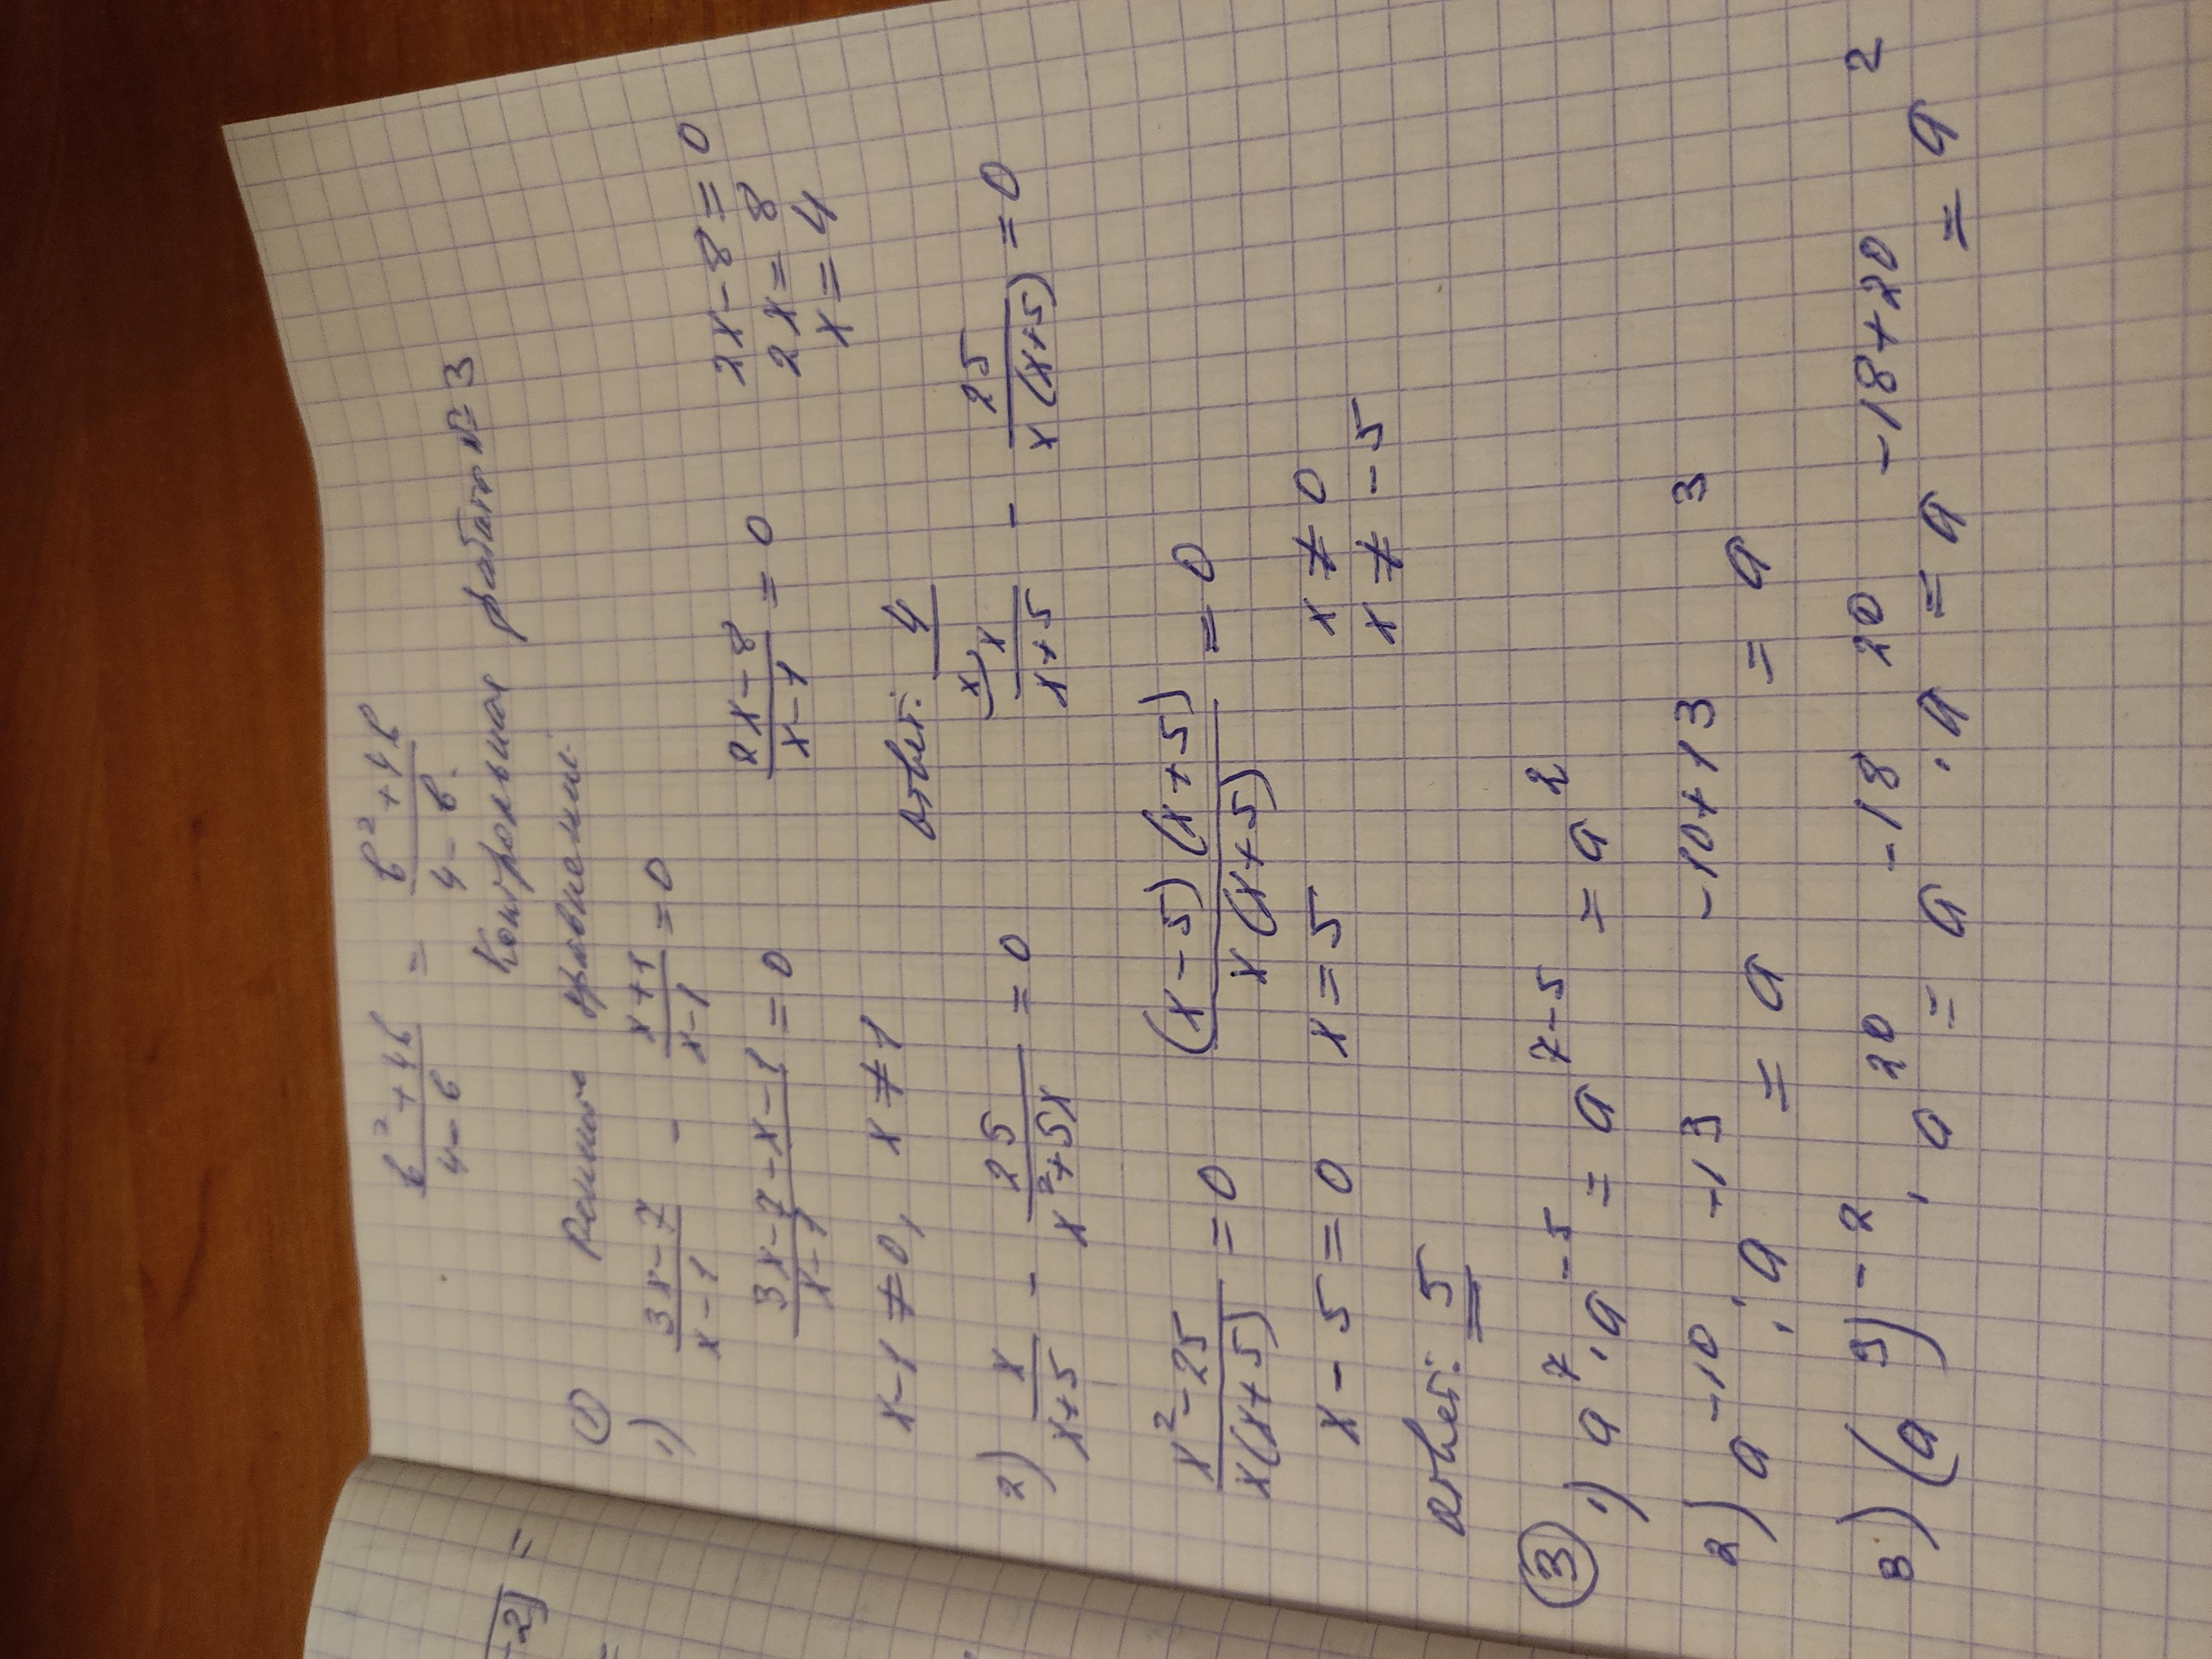 b²+4b / 4-b = b²+4b / 4-b.
Контрольная работа № 3
① Решить уравнения:
1) 3x-7 / x-1 - x+1 / x-1 = 0
3x-7-x-1 / x-1 = 0 2x-8 / x-1 = 0 2x-8=0
2x=8
x=4
x-1≠0, x≠1 Ответ: 4
2) x / x+5 - 25 / x²+5x = 0 x) x / x+5 - 25 / x(x+5) = 0
x²-25 / x(x+5) = 0 (x-5)(x+5) / x(x+5) = 0
x-5=0 x=5 x≠0
x≠-5
Ответ: 5
③ 1) a⁷·a⁻⁵ = a⁷⁻⁵ = a²
2) a⁻¹⁰ : a⁻¹³ = a⁻¹⁰⁺¹³ = a³
3) (a⁹)⁻² · a²⁰ = a⁻¹⁸ · a²⁰ = a⁻¹⁸⁺²⁰ = a²
-2) =
=